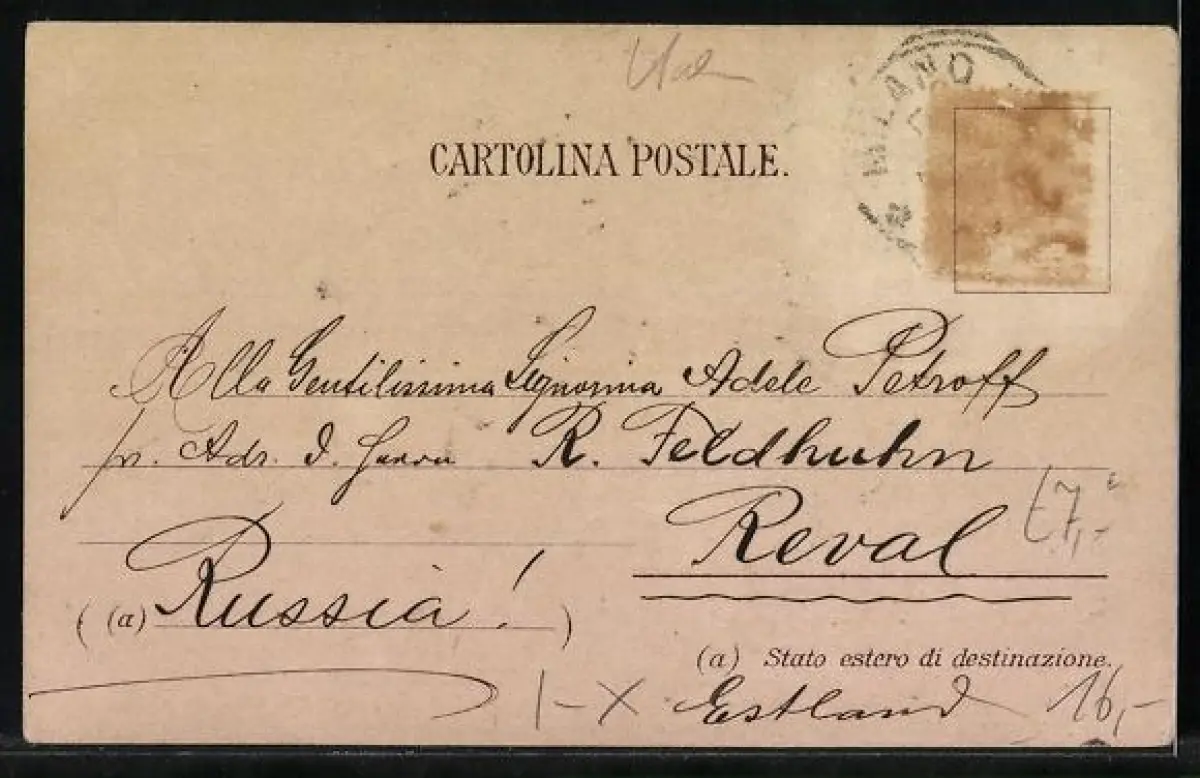 MILANO
CARTOLINA POSTALE.
Alla Gentilissima Signorina Adele Petroff
pr. Adr. d. Herrn R. Feldhuhn
Reval
(a) Russia!
(a) Stato estero di destinazione.
Estland 16,-